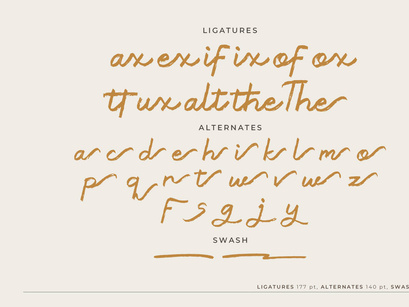 LIGATURES
ax ex if ix of ox
tt ux alt the The
ALTERNATES
a c d e h i k l m o
p q n t u r v w z
F s g j y
SWASH
LIGATURES 177 pt, ALTERNATES 140 pt, SWAS